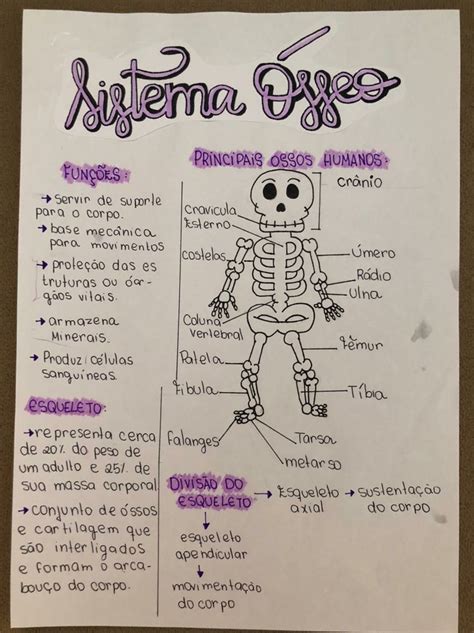 Sistema Ósseo
FUNÇÕES:
→ servir de suporte
para o corpo.
→ base mecânica
para movimentos
→ proteção das es
truturas ou ór-
gãos vitais.
→ armazena
Minerais.
→ Produzi células
sanguíneas.
ESQUELETO:
→ representa cerca
de 20% do peso de
um adulto e 25% de
sua massa corporal
→ conjunto de óssos
e cartilagem que
são interligados
e formam o arca-
bouço do corpo.
PRINCIPAIS OSSOS HUMANOS:
crânio
cravicula
Esterno
costelas
Úmero
Rádio
Ulna
Coluna
vertebral
Fêmur
Patela
Fíbula
Tíbia
Falanges
Tarso
metarso
DIVISÃO DO
ESQUELETO
→ Esqueleto
axial
→ sustentação
do corpo
↓
esqueleto
apendicular
↓
movimentação
do corpo